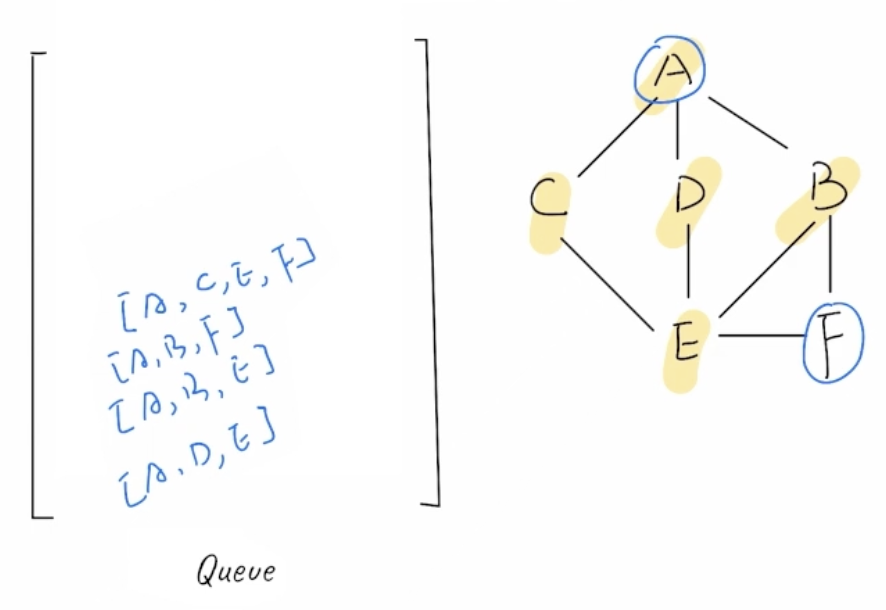 [A, C, E, F]
[A, B, F]
[A, B, E]
[A, D, E]
Queue
A
C D B
E F